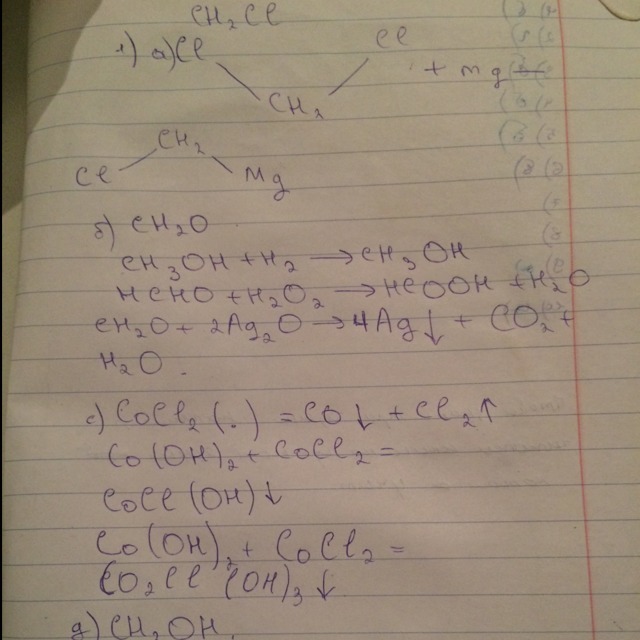 CH₂Cl
1) а) Cl Cl
CH₂ + Mg
CH₂
Cl Mg
б) CH₂O
CH₃OH + H₂ → CH₃OH
HCHO + H₂O₂ → HCOOH + H₂O
CH₂O + 2Ag₂O → 4Ag↓ + CO₂ +
H₂O.
с) CoCl₂(.) = CO↓ + Cl₂↑
Co(OH)₂ + CoCl₂ =
CoCl(OH)↓
Co(OH)₂ + CoCl₂ =
CO₂Cl(OH)₃↓
д) CH₃OH,